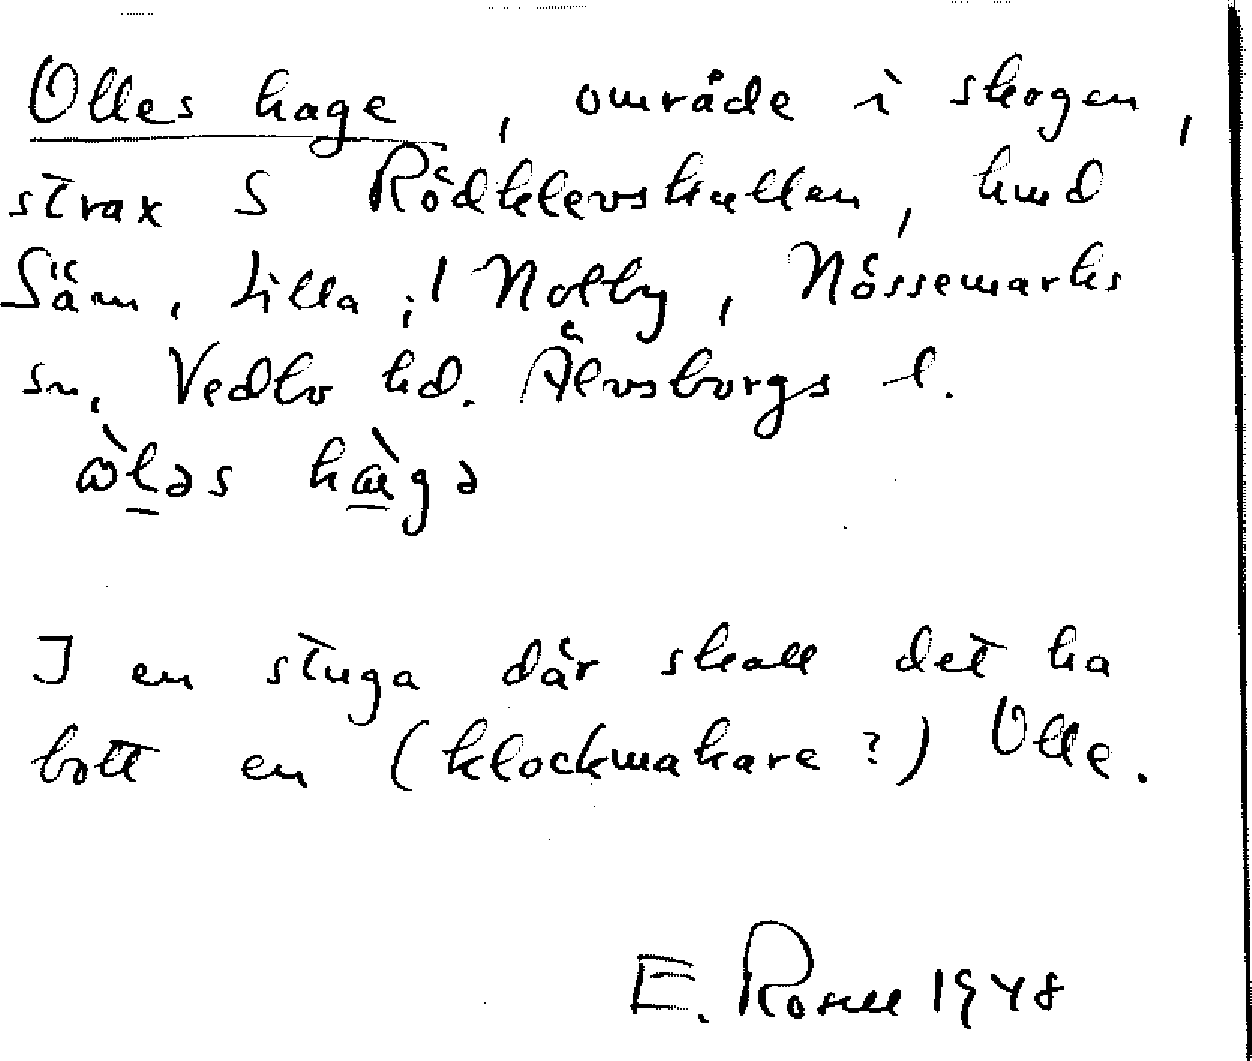 Olles hage, område i skogen,
strax S Rödklevskullen, hmd
Säm, Lilla, i Nolby, Nössemarks
sn, Vedbo hd. Älvsborgs l.
hage
I en stuga där skall det ha
bott en (klockmakare?) Olle.
E. Rosell 1948